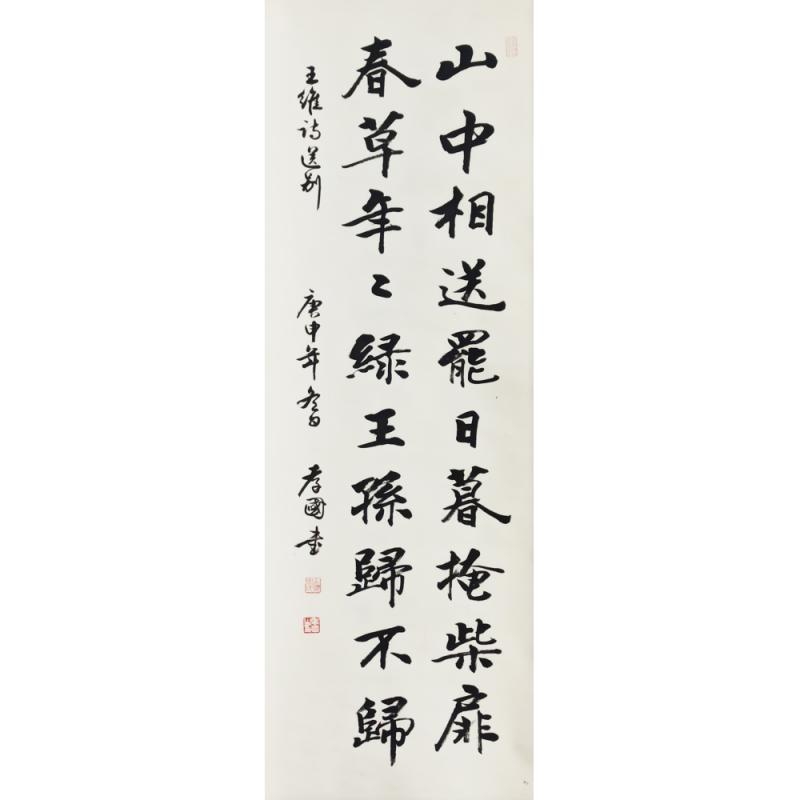 山中相送罷日暮掩柴扉
春草年〻綠王孫歸不歸
王維詩送別
庚申年冬日 孝國書